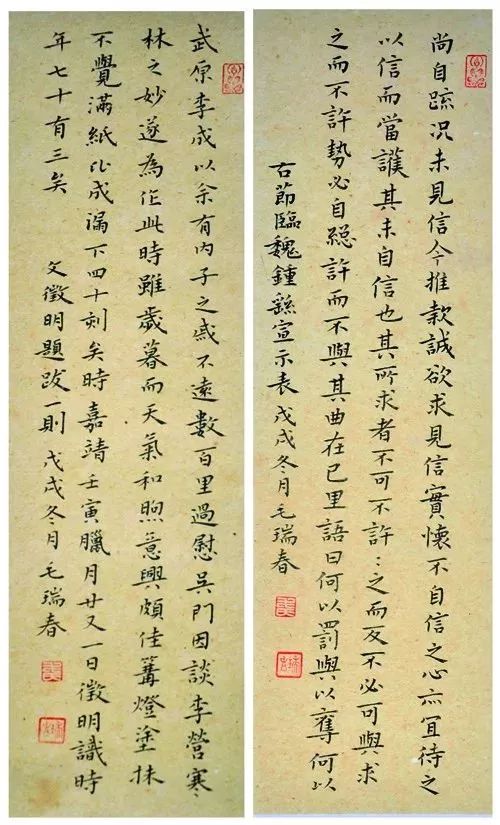 尚自疏况未見信今推款誠欲求見信實懷不自信之心亦宜待之
以信而當護其未自信也其所求者不可不許:之而反不必可與求
之而不許勢必自絕許而不與其曲在已里語曰何以罰與以奪何以
古節臨魏鍾繇宣示表戊戌冬月毛瑞春
武原李成以余有内子之戚不遠數百里過慰吳門因談李營寒
林之妙遂為作此時雖歲暮而天氣和煦意興頗佳篝燈塗抹
不覺滿紙比成漏下四十刻矣時嘉靖壬寅臘月廿又一日徵明識時
年七十有三矣 文徵明題跋一則 戊戌冬月毛瑞春